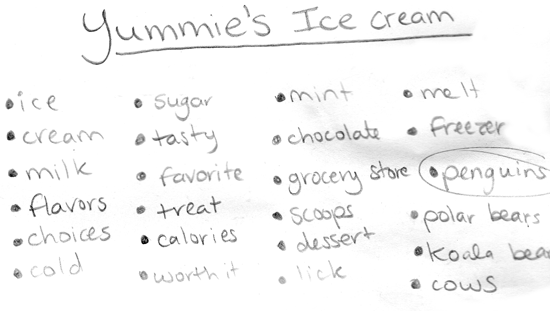 Yummie's Ice cream
• ice
• cream
• milk
• flavors
• choices
• cold
• sugar
• tasty
• favorite
• treat
• calories
• worth it
• mint
• chocolate
• grocery store
• scoops
• dessert
• lick
• melt
• freezer
• penguins
• polar bears
• Koala bea
• cows